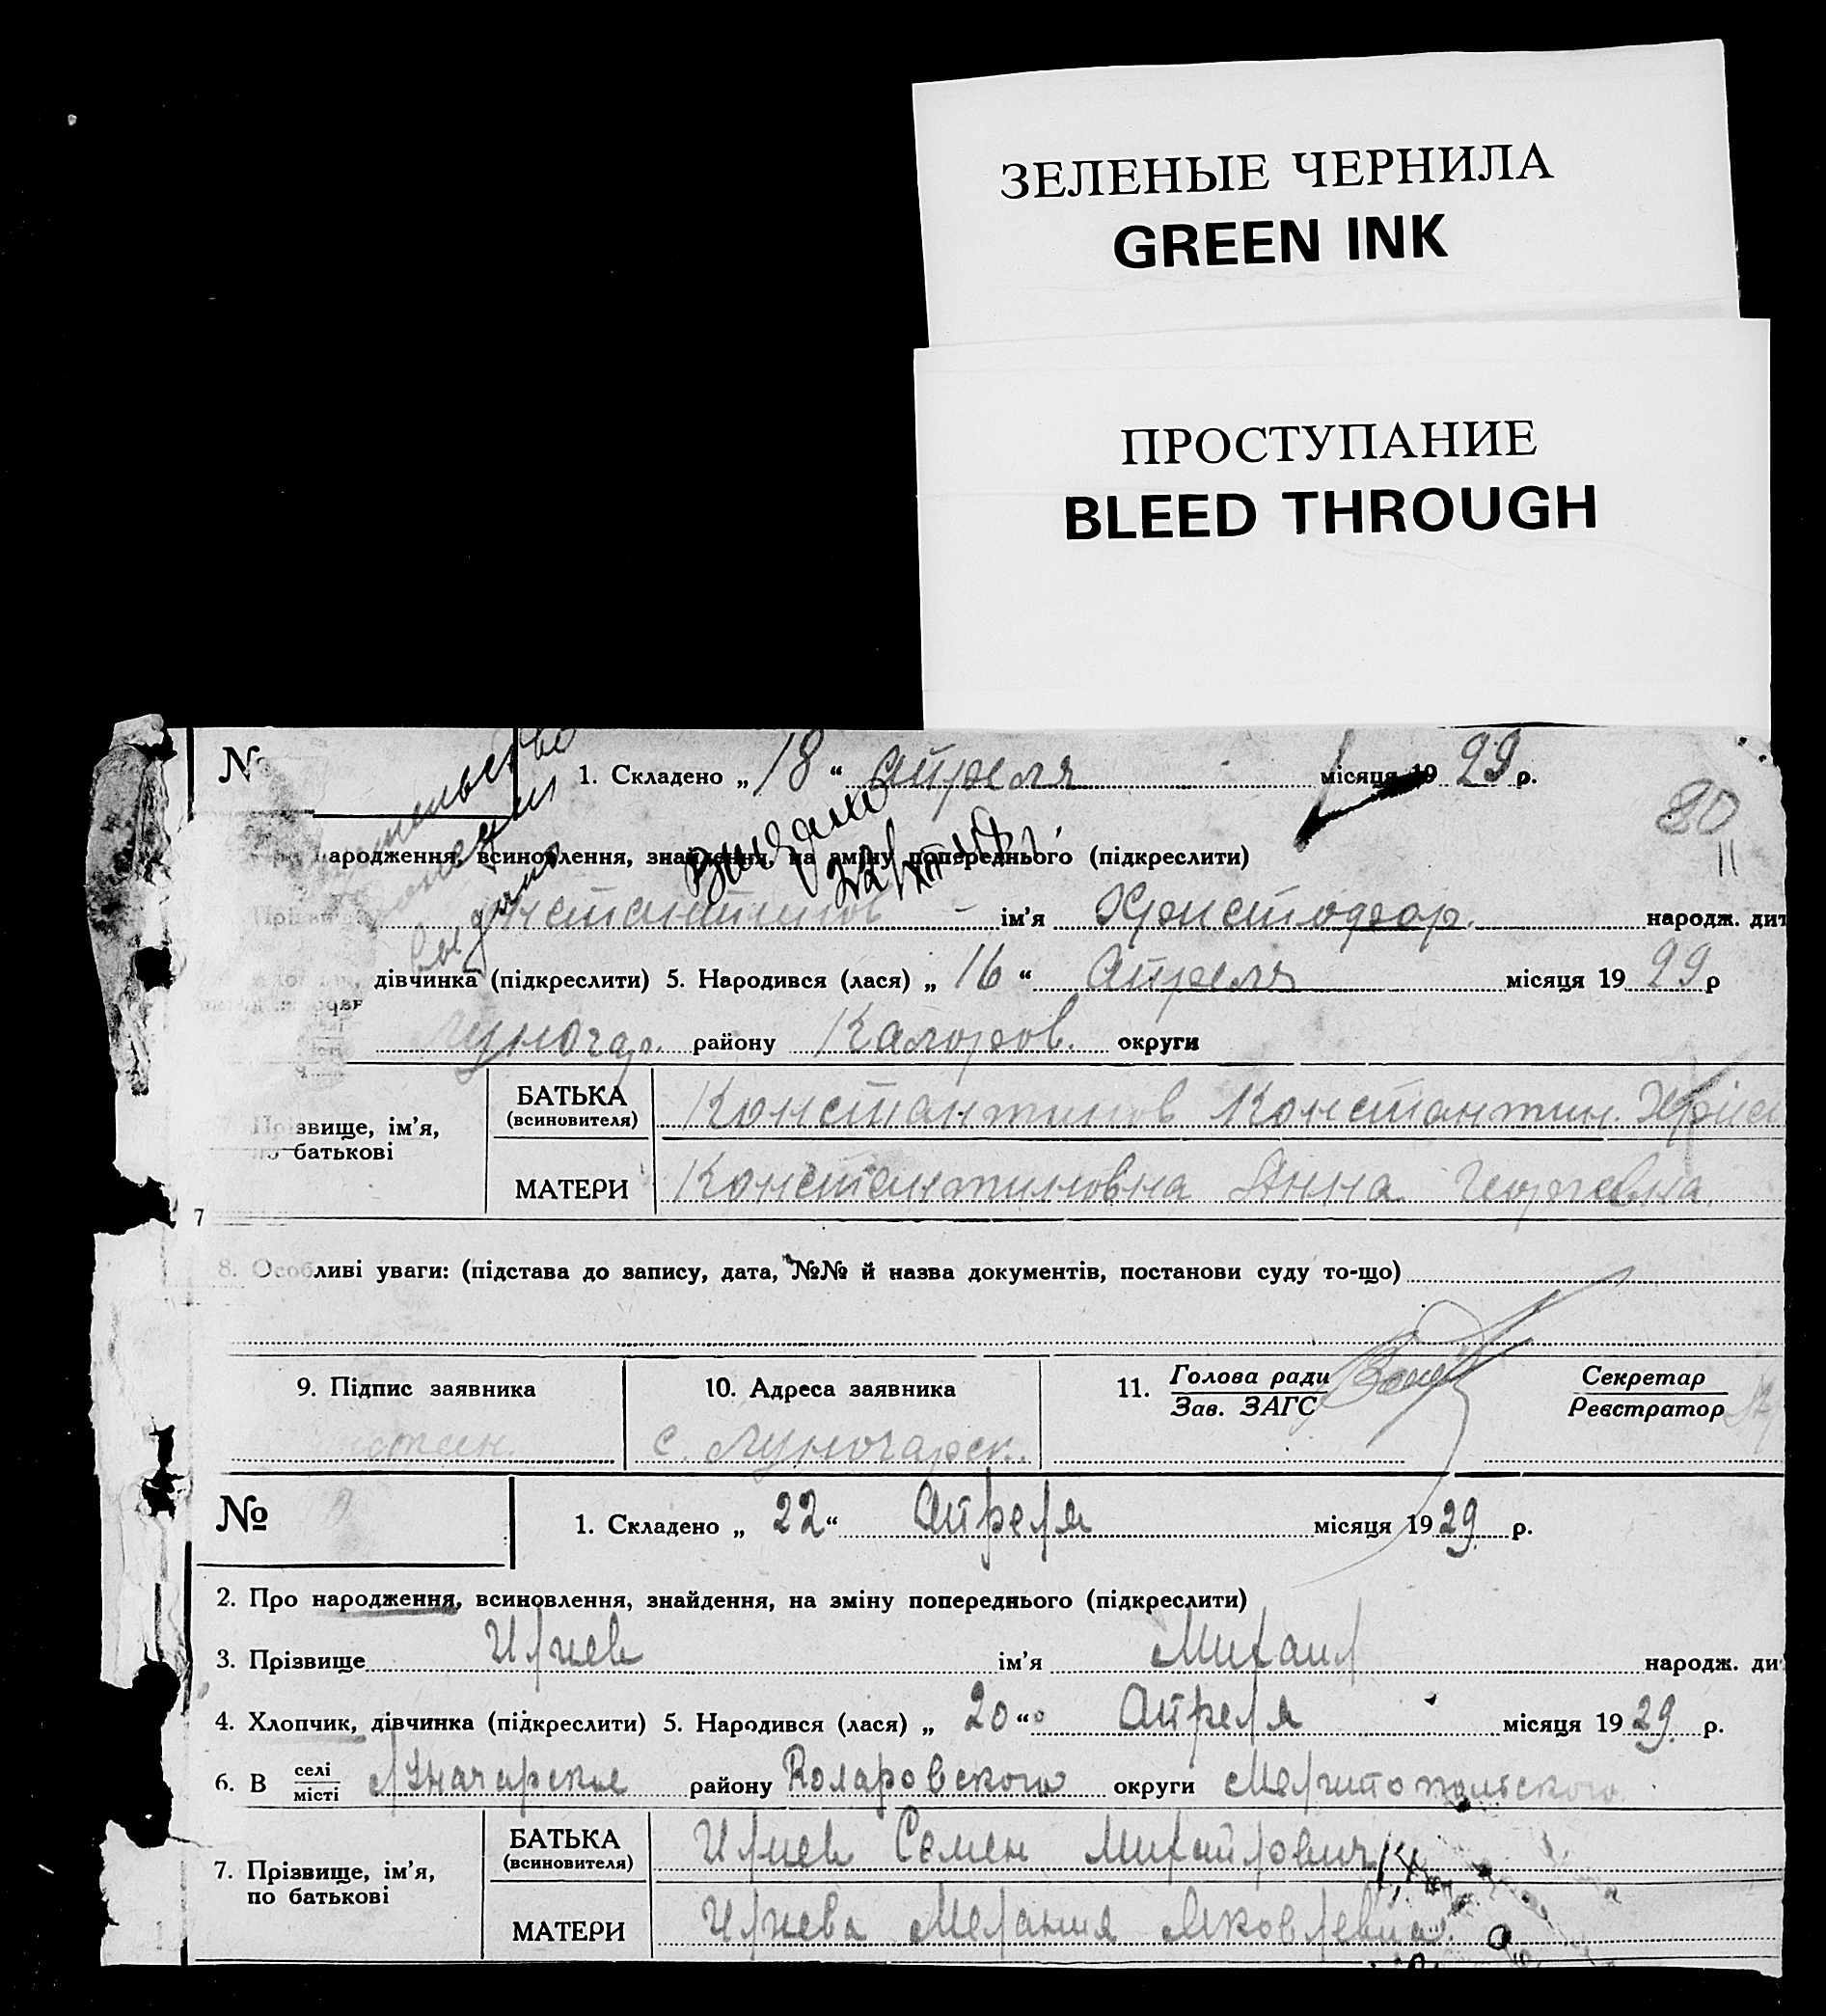 ЗЕЛЕНЫЕ ЧЕРНИЛА
GREEN INK
ПРОСТУПАНИЕ
BLEED THROUGH
№ 1. Складено „ 18 “ Апреля місяця 1929 р.
80
11
ародження, всиновлення, знайдення, на зміну попереднього (підкреслити)
нстантинов ім'я Христофор. народж. дит
дівчинка (підкреслити) 5. Народився (лася) „ 16 “ Апреля місяця 1929 р
Луночар. району Каларов. округи
БАТЬКА
(всиновителя)
Константинов Константин. Хрис
Прізвище, ім'я,
по батькові
МАТЕРИ Константиновна Анна Георгевна.
7
8. Особливі уваги: (підстава до запису, дата, №№ й назва документів, постанови суду то-що)
9. Підпис заявника 10. Адреса заявника 11. Голова ради Секретар
Зав. ЗАГС Реєстратор
с. Луночарск.
№ 1. Складено „ 22 “ Апреля місяця 1929 р.
2. Про народження, всиновлення, знайдення, на зміну попереднього (підкреслити)
3. Прізвище Илиев ім'я Михаил народж. ди
4. Хлопчик, дівчинка (підкреслити) 5. Народився (лася) „ 20 “ Апреля місяця 1929 р.
6. В селі Лзначарские району Коларовского округи Мелитопольского
місті
БАТЬКА
(всиновителя)
Илиев Семен Михайлович
7. Прізвище, ім'я,
по батькові
МАТЕРИ Илиева Мелания Яковлевна.